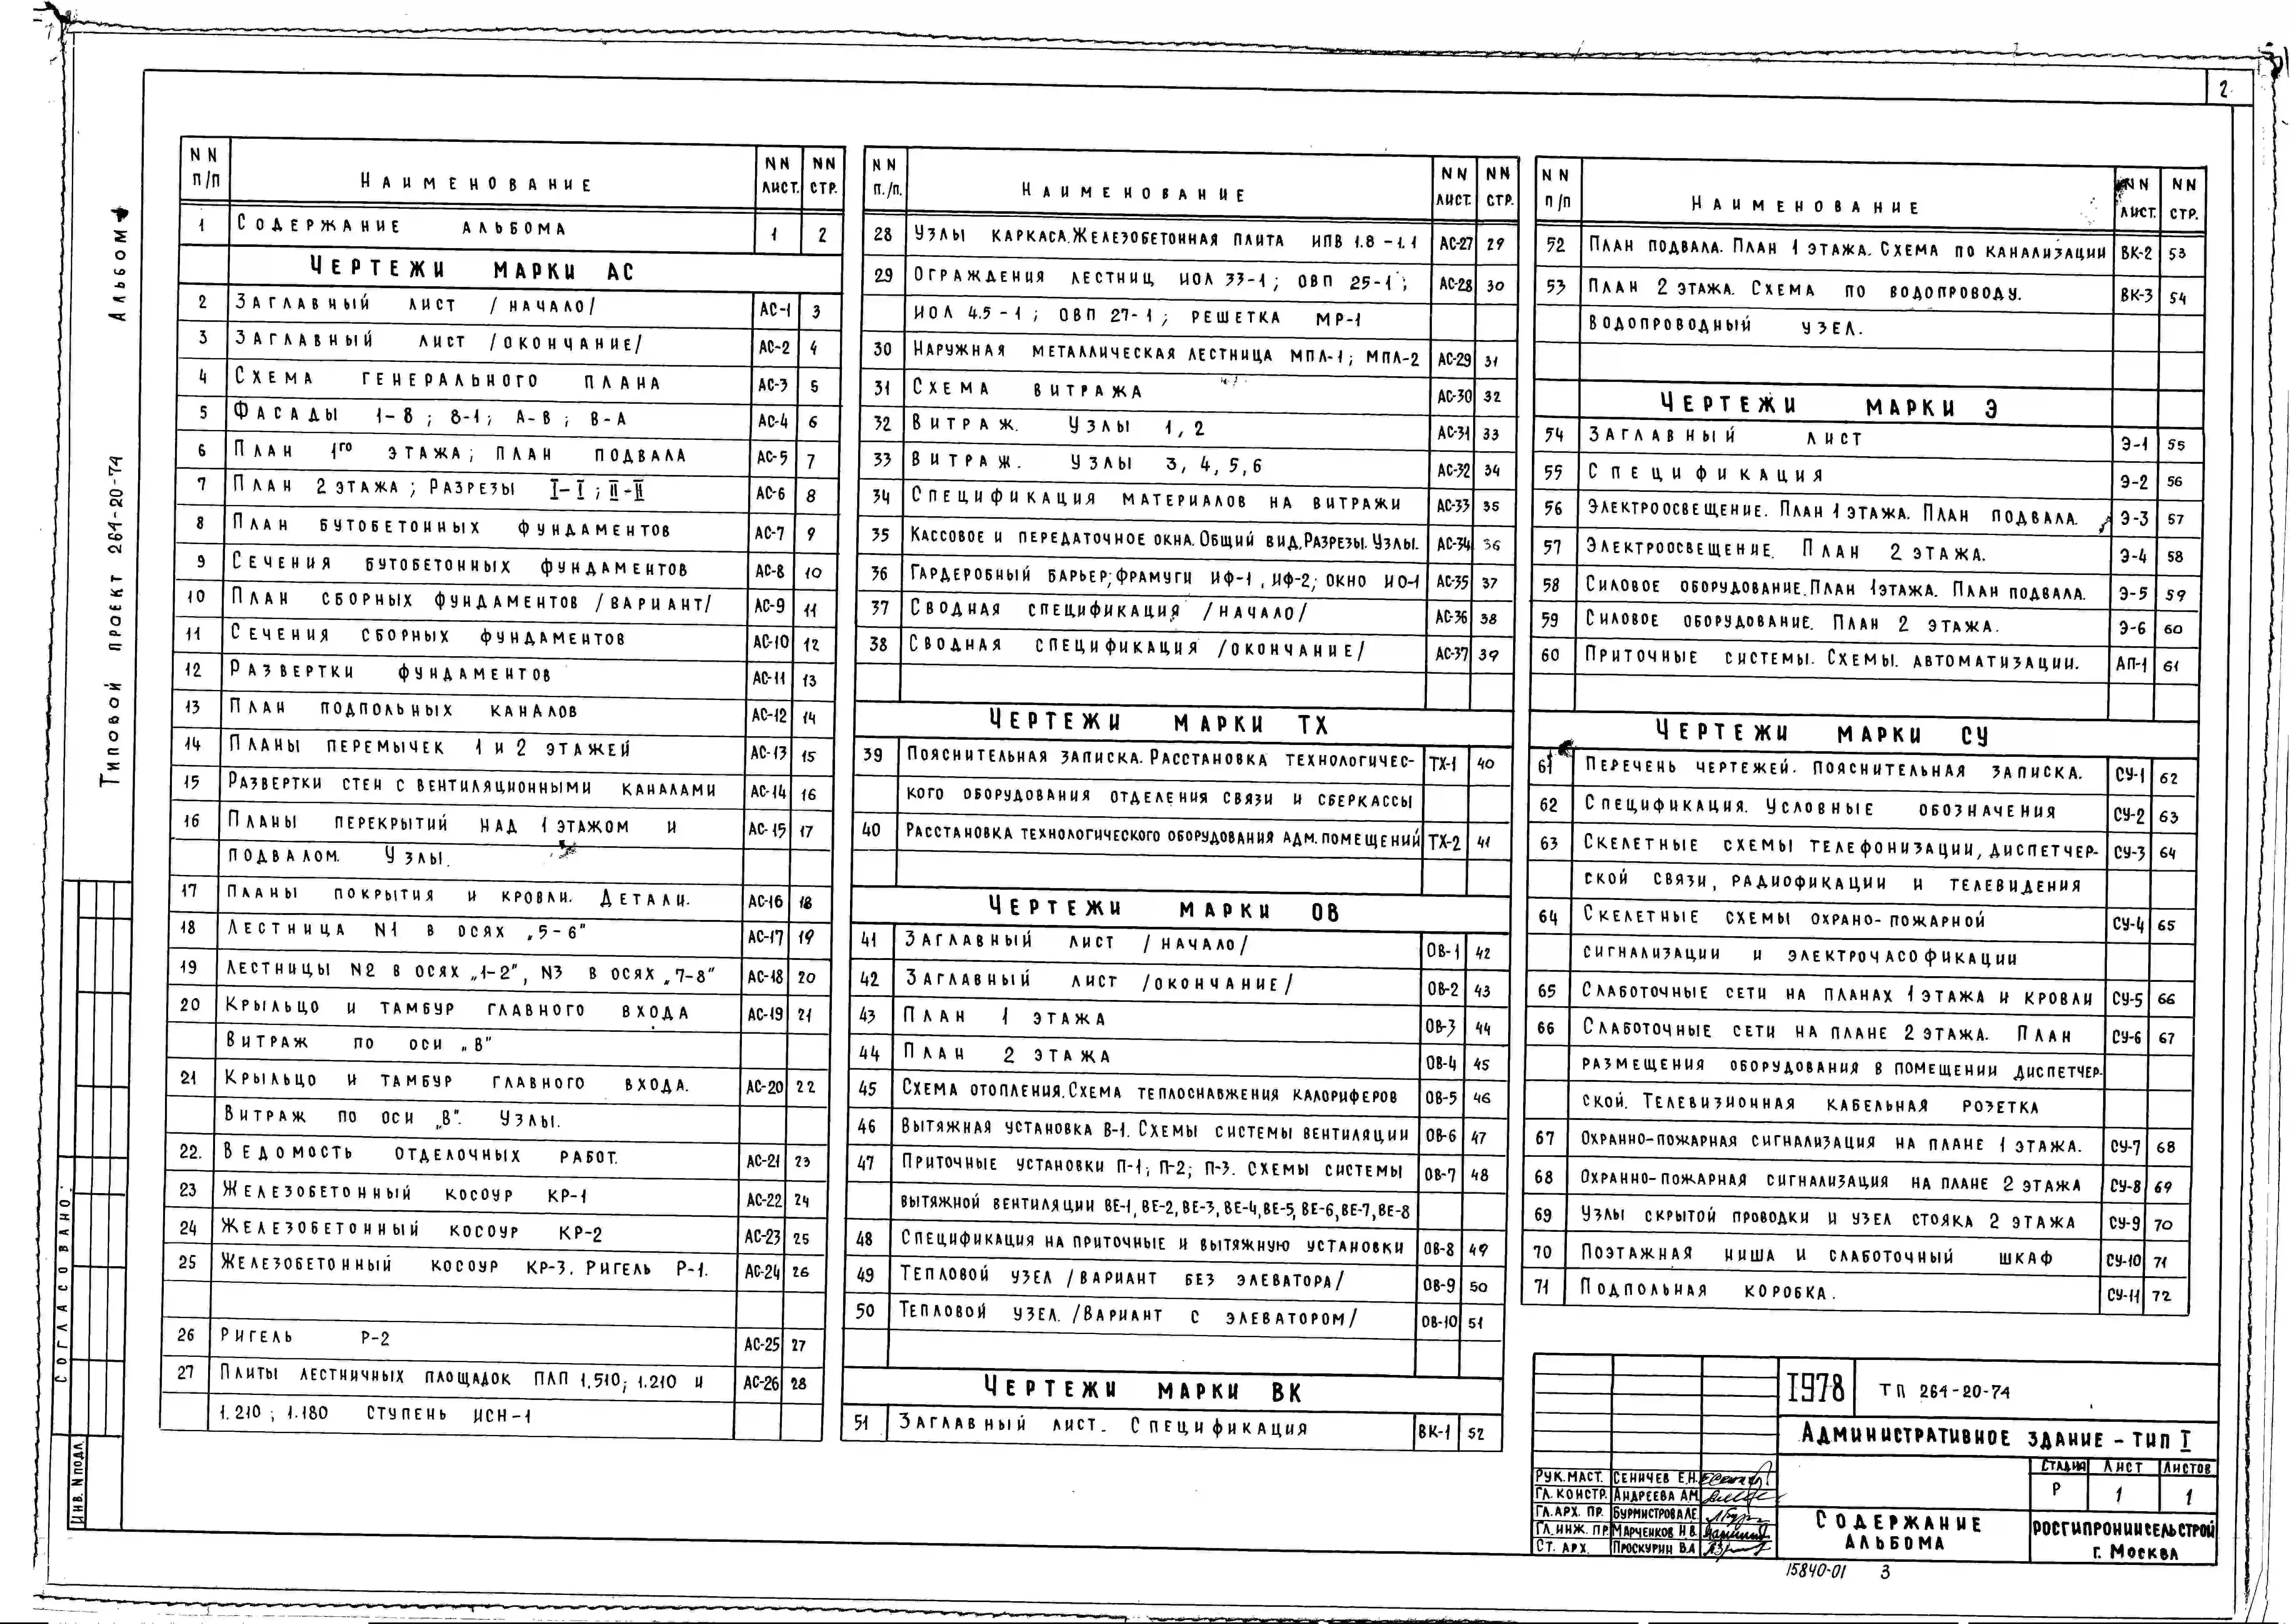 2
Альбом
Типовой проект 264-20-74
Согласовано:
Инв. N подл.
NN п/п Наименование NN лист. NN стр.
1 Содержание альбома 1 2
Чертежи марки АС
2 Заглавный лист /начало/ АС-1 3
3 Заглавный лист /окончание/ АС-2 4
4 Схема генерального плана АС-3 5
5 Фасады 1-8; 8-1; А-В; В-А АС-4 6
6 План 1го этажа; план подвала АС-5 7
7 План 2 этажа; Разрезы I-I; II-II АС-6 8
8 План бутобетонных фундаментов АС-7 9
9 Сечения бутобетонных фундаментов АС-8 10
10 План сборных фундаментов /вариант/ АС-9 11
11 Сечения сборных фундаментов АС-10 12
12 Развертки фундаментов АС-11 13
13 План подпольных каналов АС-12 14
14 Планы перемычек 1 и 2 этажей АС-13 15
15 Развертки стен с вентиляционными каналами АС-14 16
16 Планы перекрытий над 1 этажом и АС-15 17
подвалом. Узлы.
17 Планы покрытия и кровли. Детали. АС-16 18
18 Лестница N1 в осях „5-6" АС-17 19
19 Лестницы N2 в осях „1-2", N3 в осях „7-8" АС-18 20
20 Крыльцо и тамбур главного входа АС-19 21
Витраж по оси „В"
21 Крыльцо и тамбур главного входа. АС-20 22
Витраж по оси „В". Узлы.
22. Ведомость отделочных работ. АС-21 23
23 Железобетонный косоур КР-1 АС-22 24
24 Железобетонный косоур КР-2 АС-23 25
25 Железобетонный косоур КР-3. Ригель Р-1. АС-24 26
26 Ригель Р-2 АС-25 27
27 Плиты лестничных площадок ПЛП 1.510; 1.210 и АС-26 28
1.210; 1.180 ступень ИСН-1
NN п./п. Наименование NN лист. NN стр.
28 Узлы каркаса. Железобетонная плита ИПВ 1.8-1.1 АС-27 29
29 Ограждения лестниц ИОЛ 33-1; ОВП 25-1; АС-28 30
ИОЛ 4.5-1; ОВП 27-1; решетка МР-1
30 Наружная металлическая лестница МПЛ-1; МПЛ-2 АС-29 31
31 Схема витража АС-30 32
32 Витраж. Узлы 1, 2 АС-31 33
33 Витраж. Узлы 3, 4, 5, 6 АС-32 34
34 Спецификация материалов на витражи АС-33 35
35 Кассовое и передаточное окна. Общий вид. Разрезы. Узлы. АС-34 36
36 Гардеробный барьер; фрамуги ИФ-1, ИФ-2; окно ИО-1 АС-35 37
37 Сводная спецификация /начало/ АС-36 38
38 Сводная спецификация /окончание/ АС-37 39
Чертежи марки ТХ
39 Пояснительная записка. Расстановка технологичес- ТХ-1 40
кого оборудования отделения связи и сберкассы
40 Расстановка технологического оборудования адм. помещений ТХ-2 41
Чертежи марки ОВ
41 Заглавный лист /начало/ ОВ-1 42
42 Заглавный лист /окончание/ ОВ-2 43
43 План 1 этажа ОВ-3 44
44 План 2 этажа ОВ-4 45
45 Схема отопления. Схема теплоснавжения калориферов ОВ-5 46
46 Вытяжная установка В-1. Схемы системы вентиляции ОВ-6 47
47 Приточные установки П-1; П-2; П-3. Схемы системы ОВ-7 48
вытяжной вентиляции ВЕ-1, ВЕ-2, ВЕ-3, ВЕ-4, ВЕ-5, ВЕ-6, ВЕ-7, ВЕ-8
48 Спецификация на приточные и вытяжную установки ОВ-8 49
49 Тепловой узел /вариант без элеватора/ ОВ-9 50
50 Тепловой узел. /Вариант с элеватором/ ОВ-10 51
Чертежи марки ВК
51 Заглавный лист. Спецификация ВК-1 52
NN п/п Наименование NN лист. NN стр.
52 План подвала. План 1 этажа. Схема по канализации ВК-2 53
53 План 2 этажа. Схема по водопроводу. ВК-3 54
Водопроводный узел.
Чертежи марки Э
54 Заглавный лист Э-1 55
55 Спецификация Э-2 56
56 Электроосвещение. План 1 этажа. План подвала. Э-3 57
57 Электроосвещение. План 2 этажа. Э-4 58
58 Силовое оборудование. План 1 этажа. План подвала. Э-5 59
59 Силовое оборудование. План 2 этажа. Э-6 60
60 Приточные системы. Схемы. автоматизации. АП-1 61
Чертежи марки СУ
61 Перечень чертежей. Пояснительная записка. СУ-1 62
62 Спецификация. Условные обозначения СУ-2 63
63 Скелетные схемы телефонизации, диспетчер- СУ-3 64
ской связи, радиофикации и телевидения
64 Скелетные схемы охрано-пожарной СУ-4 65
сигнализации и электрочасофикации
65 Слаботочные сети на планах 1 этажа и кровли СУ-5 66
66 Слаботочные сети на плане 2 этажа. План СУ-6 67
размещения оборудования в помещении диспетчер-
ской. Телевизионная кабельная розетка
67 Охранно-пожарная сигнализация на плане 1 этажа. СУ-7 68
68 Охранно-пожарная сигнализация на плане 2 этажа СУ-8 69
69 Узлы скрытой проводки и узел стояка 2 этажа СУ-9 70
70 Поэтажная ниша и слаботочный шкаф СУ-10 71
71 Подпольная коробка. СУ-11 72
1978 ТП 264-20-74
Административное здание - тип I
Стадия Лист Листов
Р 1 1
Рук. маст. Сеничев Е.Н.
Гл. констр. Андреева А.М.
Гл. арх. пр. Бурмистрова Л.Е.
Гл. инж. пр. Марченков Н.В.
Ст. арх. Проскурин В.А
Содержание альбома
Росгипрониисельстрой
г. Москва
15840-01 3